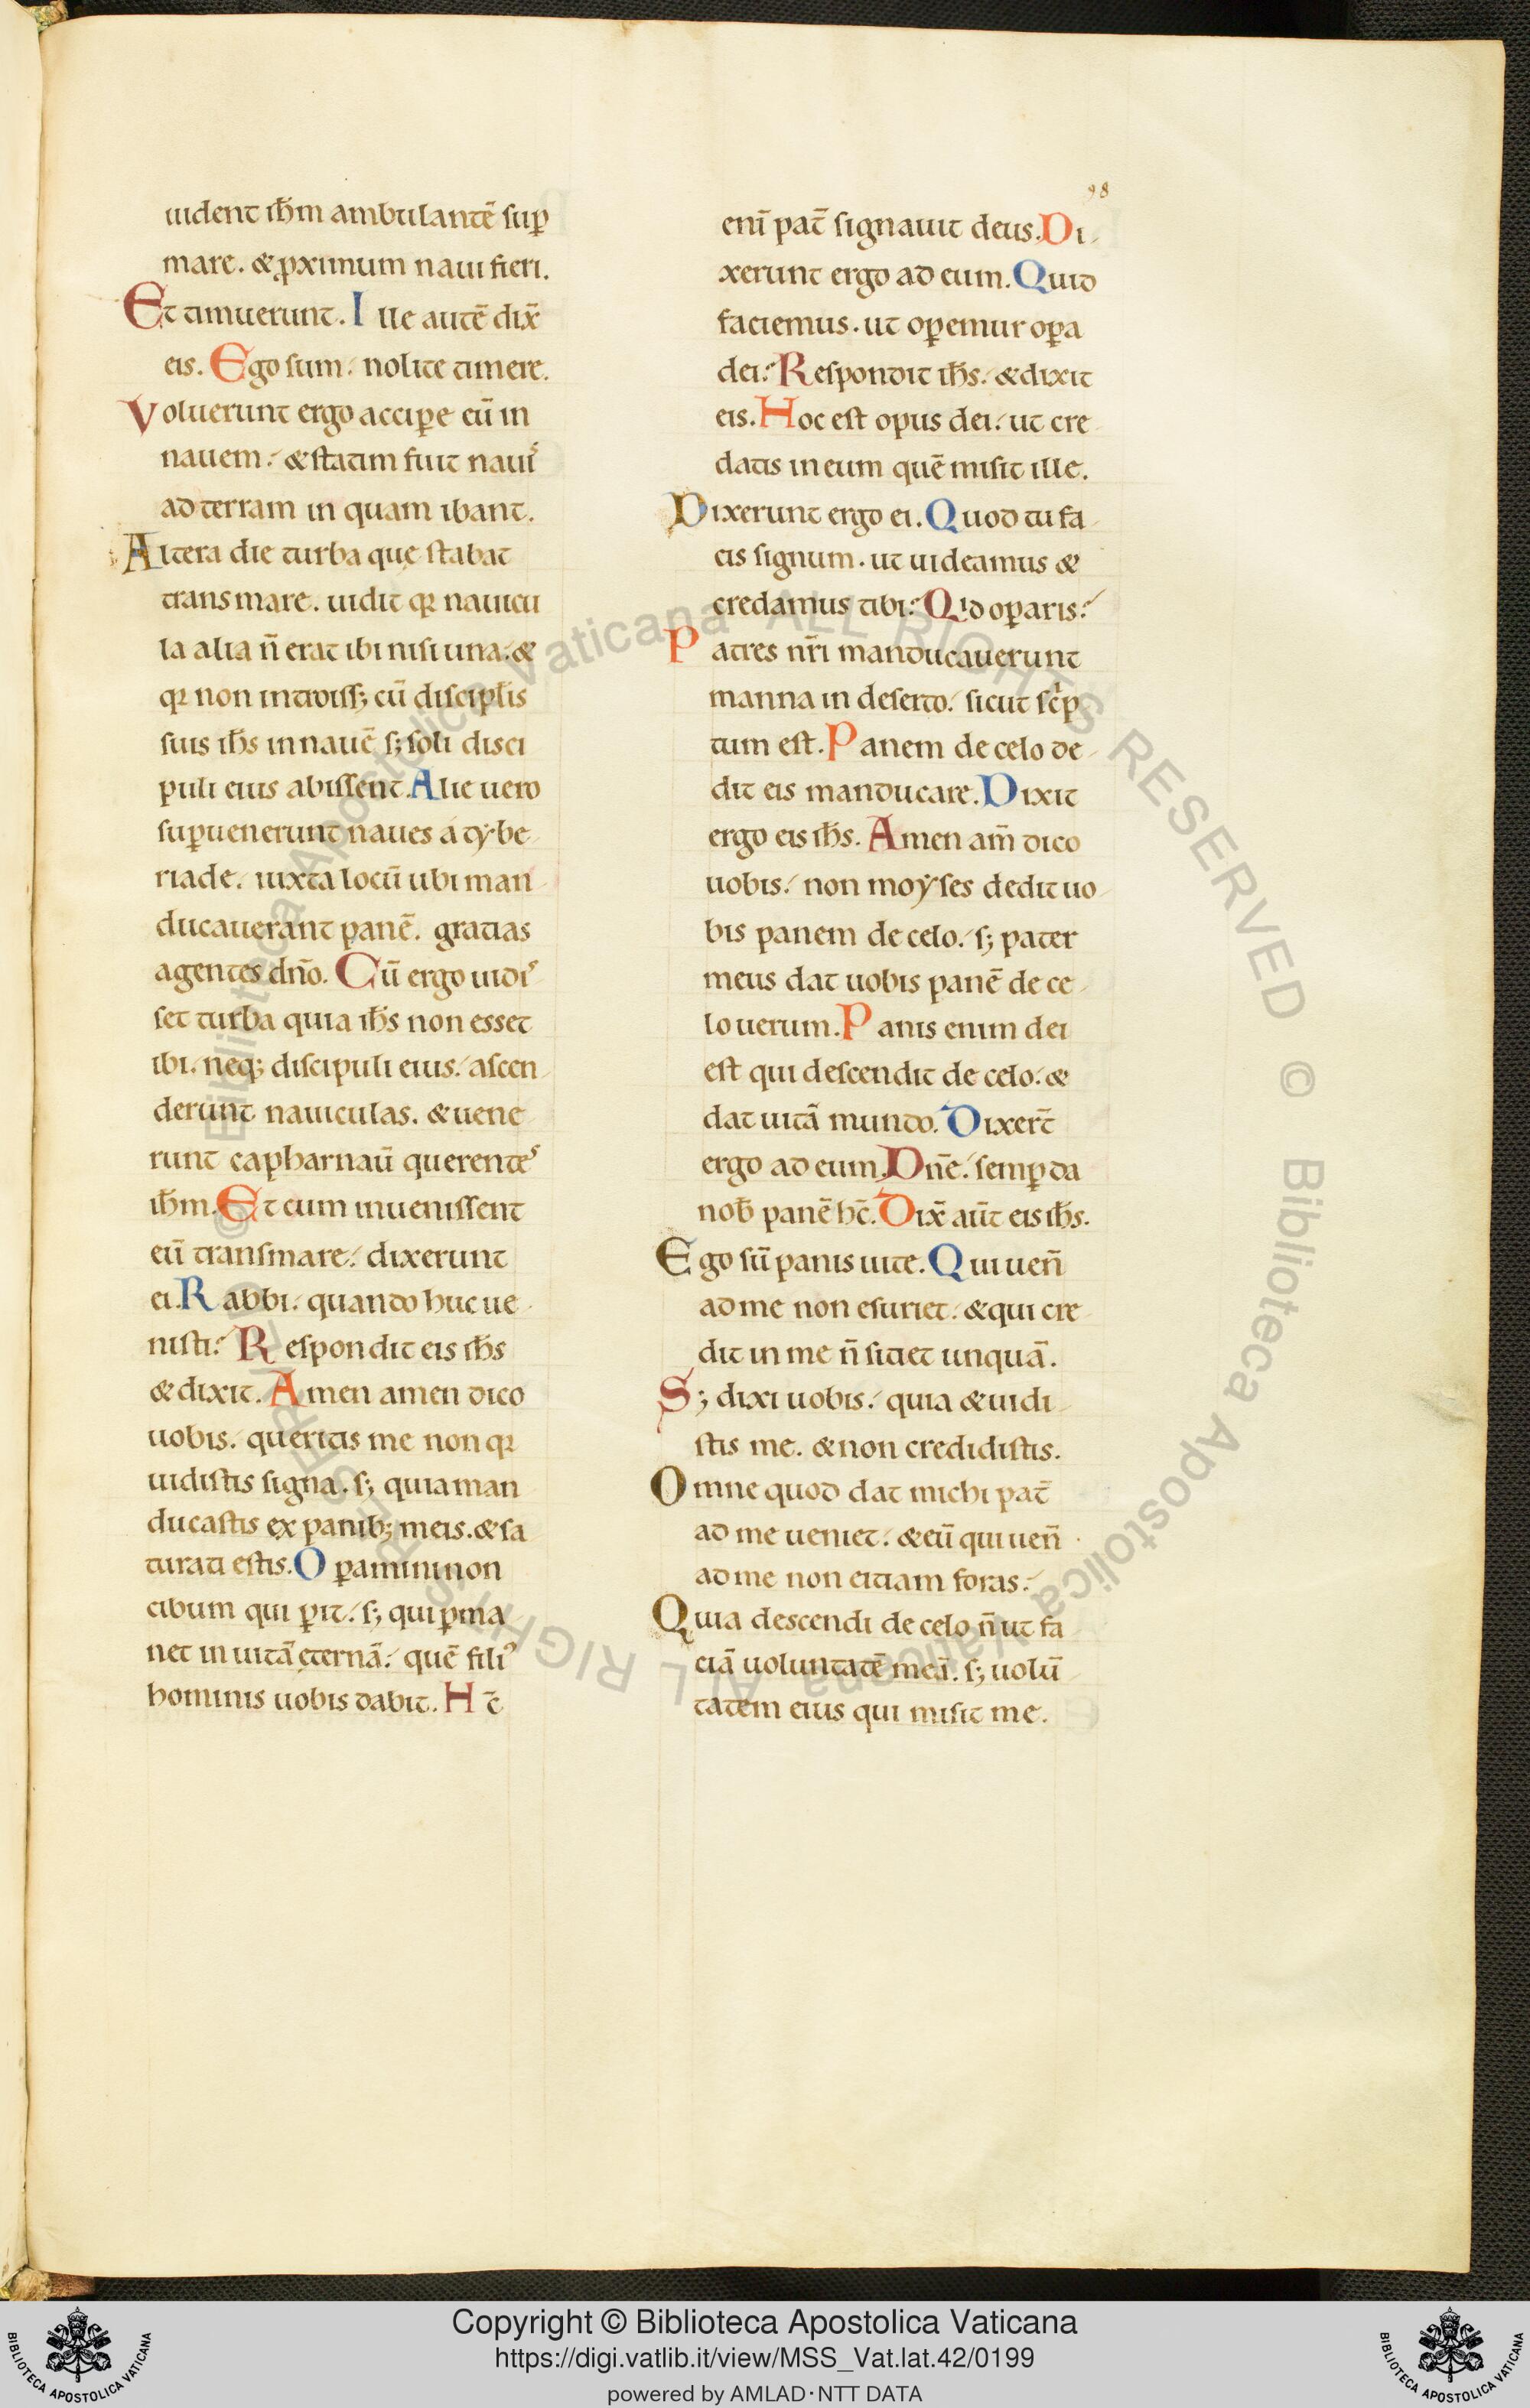 98
uident ihm̅ ambulante̅ sup̲
mare. & p̲ximum naui fieri.
Et timuerunt. Ille aute̅ dix̅
eis. Ego sum. nolite timere.
Voluerunt ergo accip̲e eu̅ in
nauem. & statim fuit nauis
ad terram in quam ibant.
Altera die turba que stabat
trans mare. uidit qꝛ nauicu
la alia n̅ erat ibi nisi una. &
qꝛ non introiss; cu̅ discipl̅is
suis ih̅s in naue̅ s; soli disci
puli eius abissent. Alie uero
sup̲uenerunt naues a tybe
riade. iuxta locu̅ ubi man
ducauerant pane̅. gratias
agentes dn̅o. Cu̅ ergo uidis
set turba quia ih̅s non esset
ibi. neq; discipuli eius. ascen
derunt nauiculas. & uene
runt capharnau̅ querentes
ihm̅. Et cum inuenissent
eu̅ transmare. dixerunt
ei. Rabbi. quando huc ue
nisti? Respondit eis ih̅s
& dixit. Amen amen dico
uobis. queritis me non qꝛ
uidistis signa. s; quia man
ducastis ex panib; meis. & sa
turati estis. Op̲amini non
cibum qui p̲it. s; qui p̲ma
net in uita̅ eterna̅. que̅ fili᾿
hominis uobis dabit. Hc̅
eni̅ pat̅ signauit deus. Di
xerunt ergo ad eum. Quid
faciemus. ut op̲emur op̲a
dei? Respondit ih̅s. & dixit
eis. Hoc est opus dei. ut cre
datis in eum que̅ misit ille.
Dixerunt ergo ei. Quod tu fa
cis signum. ut uideamus &
credamus tibi? Qid op̲aris?
Patres nr̅i manducauerunt
manna in deserto. sicut scⁱp
tum est. Panem de celo de
dit eis manducare. Dixit
ergo eis ih̅s. Amen am̅ dico
uobis. non moyses dedit uo
bis panem de celo. s; pater
meus dat uobis pane̅ de ce
lo uerum. Panis enim dei
est qui descendit de celo. &
dat uita̅ mundo. Dixert̅
ergo ad eum. Dn̅e. semp̲ da
nob̅ pane̅ hc̅. Dix̅ au̅t eis ih̅s.
Ego su̅ panis uite. Qui uen̅
ad me non esuriet. & qui cre
dit in me n̅ sitiet unqua̅.
S; dixi uobis. quia & uidi
stis me. & non credidistis.
Omne quod dat michi pat̅
ad me ueniet. & eu̅ qui uen̅
ad me non eitiam foras.
Quia descendi de celo n̅ ut fa
cia̅ uoluntate̅ mea̅. s; uolu̅
tatem eius qui misit me.
© Biblioteca Apostolica Vaticana ALL RIGHTS RESERVED © Biblioteca Apostolica Vaticana ALL RIGHTS RESERVED
Copyright © Biblioteca Apostolica Vaticana
https://digi.vatlib.it/view/MSS_Vat.lat.42/0199
powered by AMLAD·NTT DATA
BIBLIOTECA APOSTOLICA VATICANA
BIBLIOTECA APOSTOLICA VATICANA